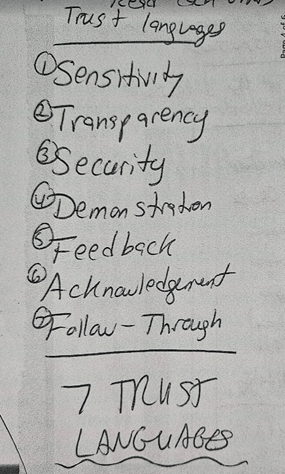 Trust languages
① Sensitivity
② Transparency
③ Security
④ Demonstration
⑤ Feedback
⑥ Acknowledgement
⑦ Follow-Through
7 TRUST
LANGUAGES